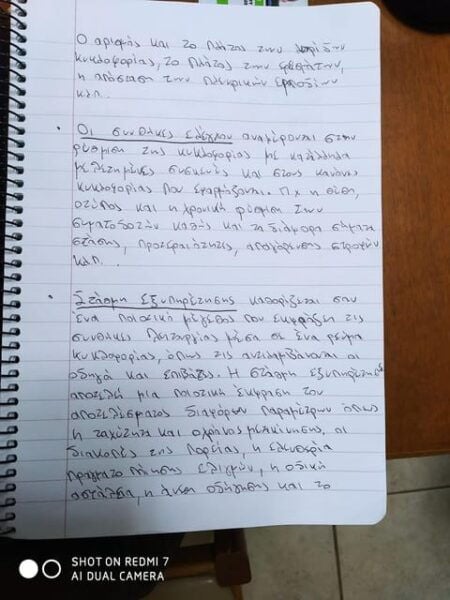 Ο αριθμός και το πλάτος των λωρίδων
κυκλοφορίας, το πλάτος των ερεισμάτων,
η απόσταση των πλευρικών εμποδίων
κ.λ.π..
• Οι συνθήκες ελέγχου αναφέρονται στην
ρύθμιση της κυκλοφορίας με κατάλληλα
μελετημένες συσκευές και στους κανόνες
κυκλοφορίας που εφαρμόζονται. Π.χ η θέση,
ο τύπος και η χρονική ρύθμιση των
σηματοδοτών καθώς και τα διάφορα σήματα
στάσης, προτεραιότητας, απαγόρευσης στροφών
κ.λ.π..
• Στάθμη εξυπηρέτησης καθορίζεται σαν
ένα ποιοτικό μέγεθος που εκφράζει τις
συνθήκες λειτουργίας μέσα σε ένα ρεύμα
κυκλοφορίας, όπως τις αντιλαμβάνονται οι
οδηγοί και επιβάτες. Η στάθμη εξυπηρέτησης
αποτελεί μια ποιοτική έκφραση του
αποτελέσματος διαφόρων παραμέτρων όπως
η ταχύτητα και ο χρόνος μετακίνησης, οι
διακοπές της πορείας, η ελευθερία
πραγματοποίησης ελιγμών, η οδική
ασφάλεια, η άνεση οδήγησης και το
SHOT ON REDMI 7
AI DUAL CAMERA